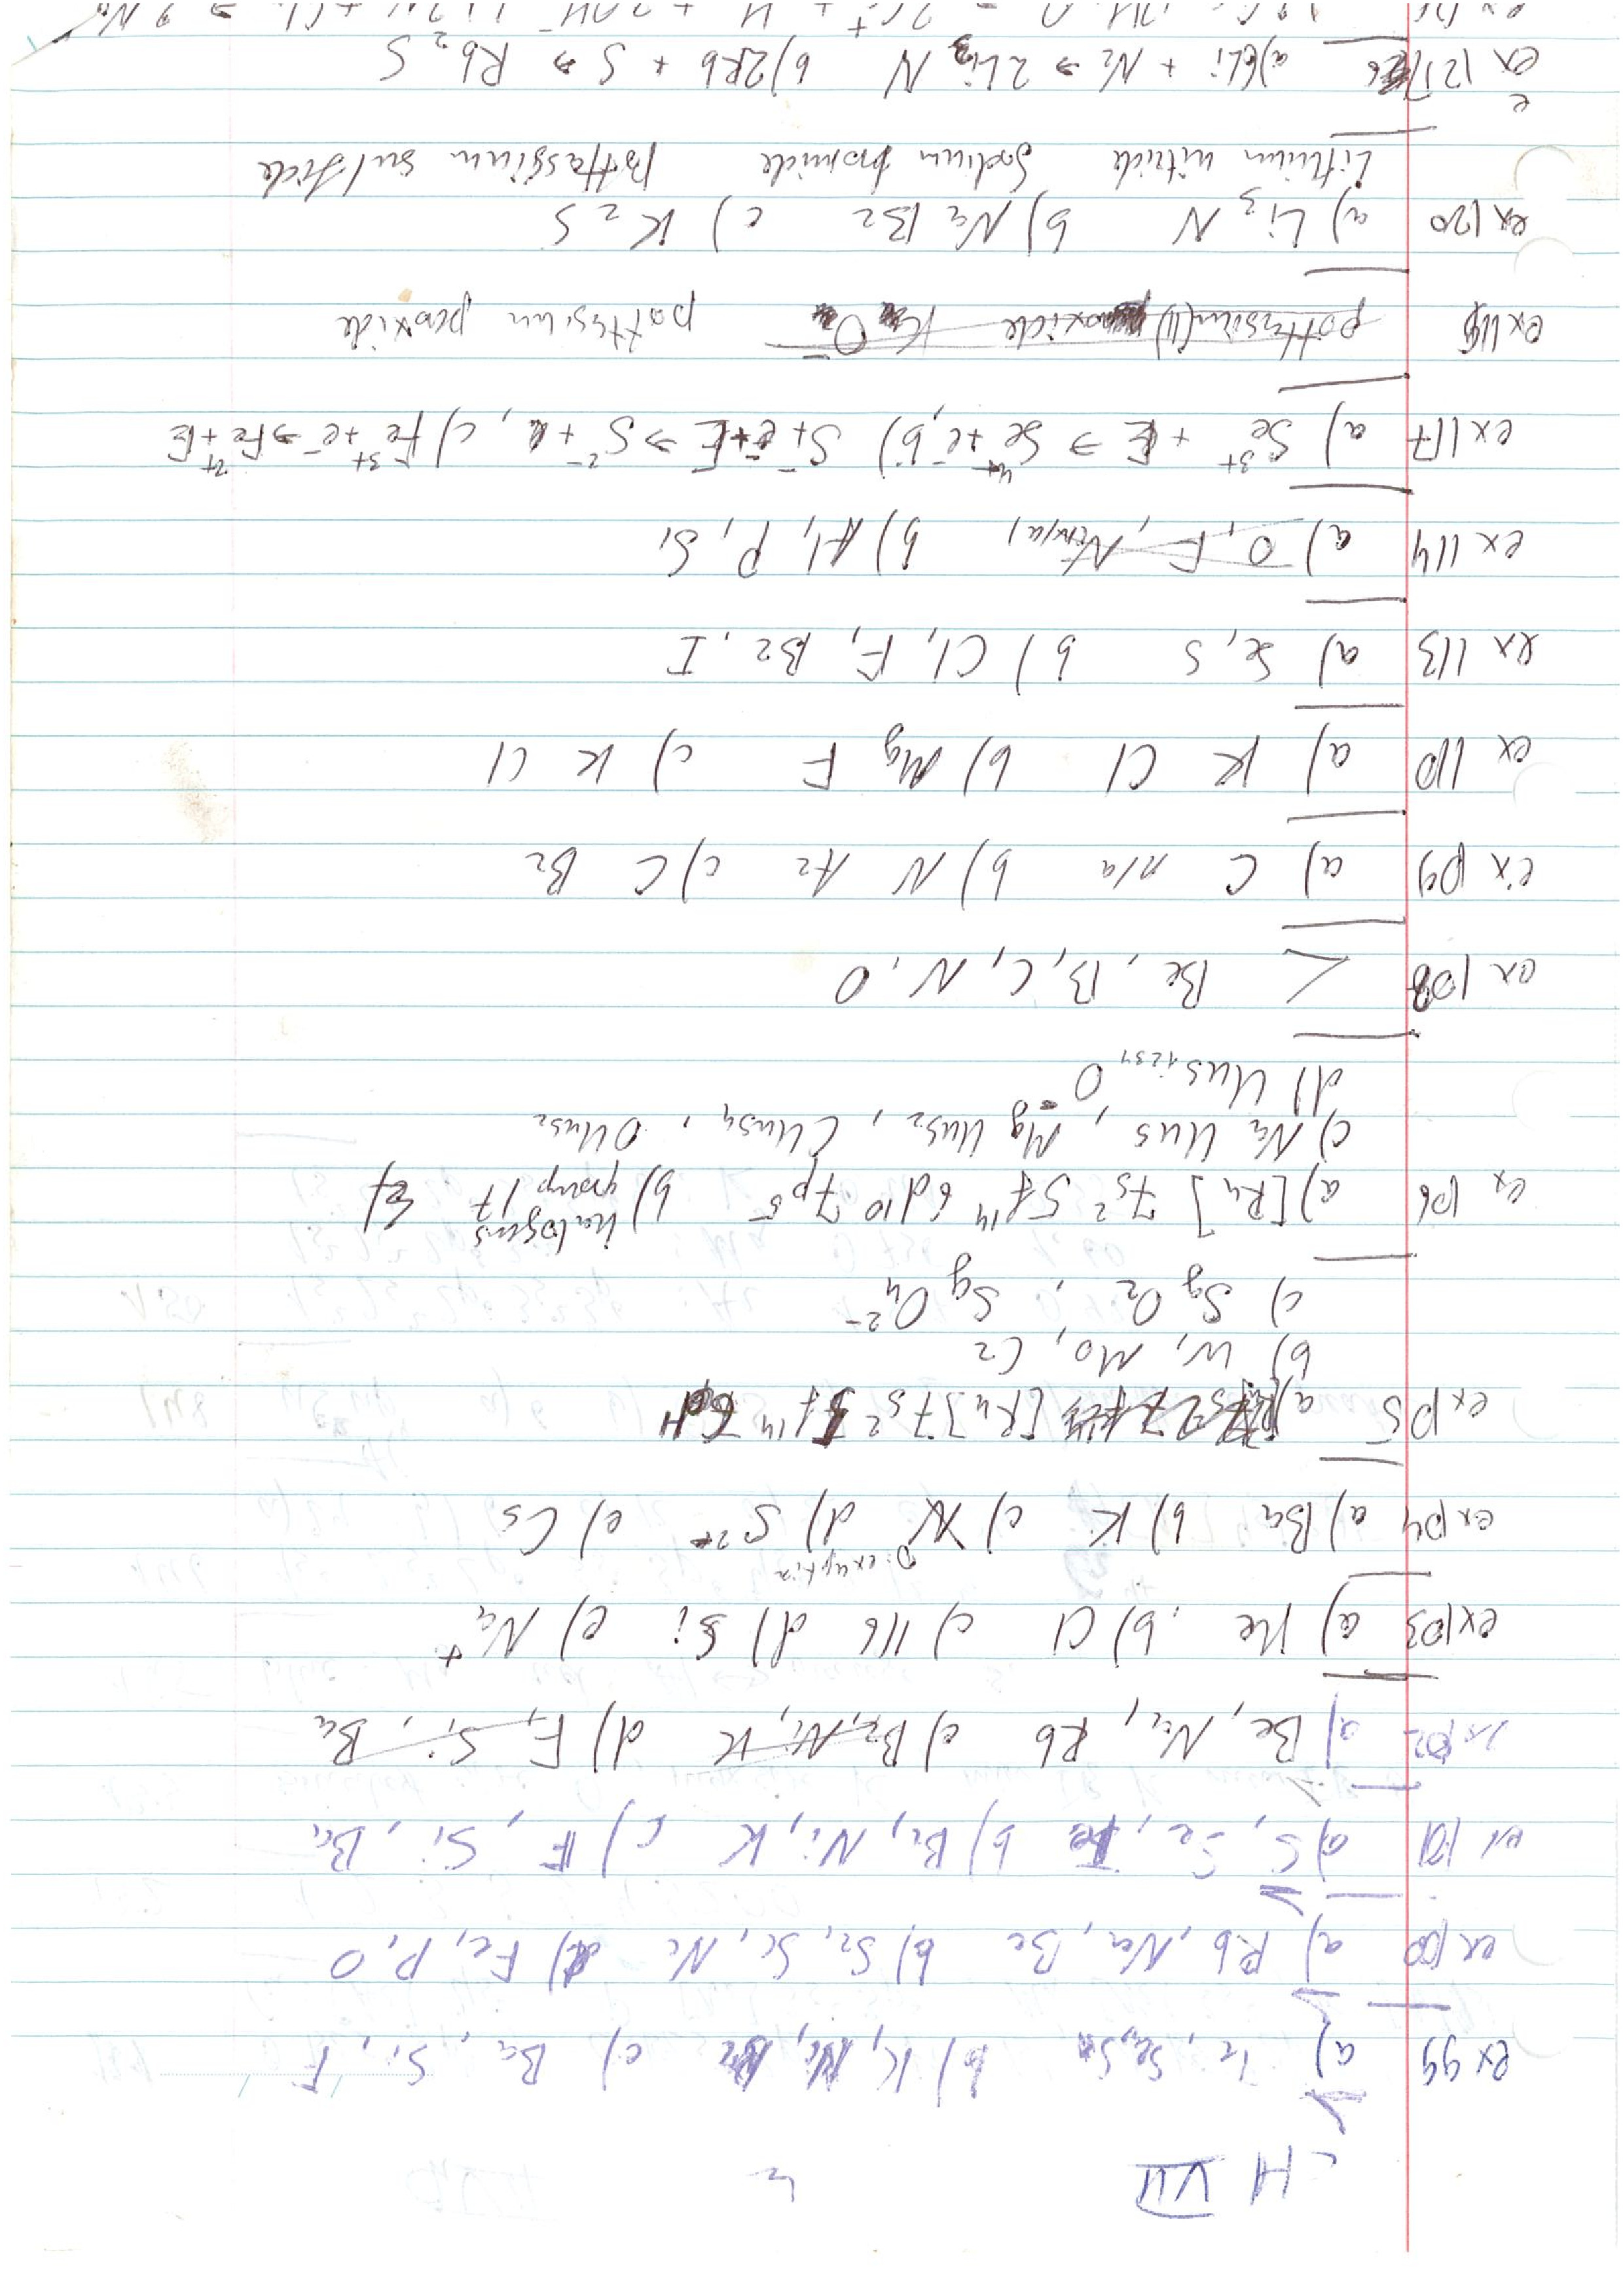 CH VII
ex 99 a) Te, Se, S b) K, Ni, Br c) Ba, Si, F
ex 100 a) Rb, Na, Be b) Sr, Se, Ne d) Fe, P, O
ex 101 a) S, Se, b) Br, Ni, K c) F, Si, Ba
102 a) Be, Na, Rb c) Br, Ni, K d) F, Si, Ba
ex 103 a) He b) Cl c) 116 d) Si e) Na+
ex 104 a) Ba b) K c) N d) S2- e) Cs
O: exception
ex 105 a) [Rn] 7s2 5f14 6d4
b) W, Mo, Cr
c) SgO2, SgO4 2-
ex 106 a) [Rn] 7s2 5f14 6d10 7p5 b) halogens group 17
c) Na Uus, Mg Uus2, C Uus4, O Uus2
d) Uus O
ex 108 < Be, B, C, N, O
ex 109 a) C n/a b) N Ar c) C Br
ex 110 a) K Cl b) Mg F c) K Cl
ex 113 a) Se, S b) Cl, F, Br, I
ex 114 a) O, F, N (n/a) b) Al, P, Si
ex 117 a) Sc3+ + E ⇒ Sc4+ + e-, b) S- + e- + E ⇒ S2- + c) Fe3+ + e- ⇒ Fe2+ + E
ex 118 pottassium(II) oxide K O- pottassium peroxide
ex 120 a) Li3 N b) Na Br c) K2 S
Lithium nitride Sodium bromide pottassium sulfide
ex 121 a) 6Li + N2 ⇒ 2Li3 N b) 2Rb + S ⇒ Rb2 S